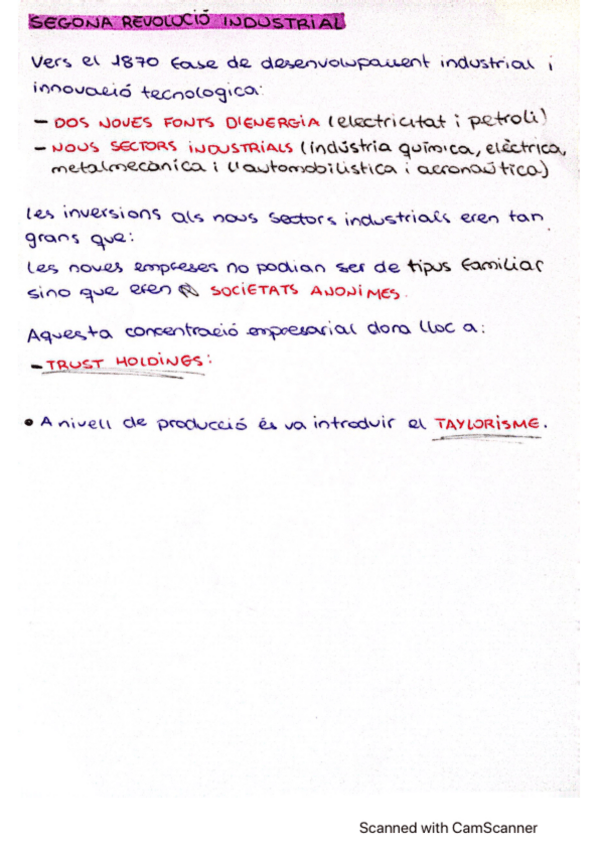 SEGONA REVOLUCIÓ INDUSTRIAL
Vers el 1870 fase de desenvolupament industrial i
innovació tecnologica:
- DOS NOVES FONTS D'ENERGIA (electricitat i petroli)
- NOUS SECTORS INDUSTRIALS (indústria química, elèctrica,
metalmecànica i l'automobilistica i aeronaútica)
Les inversions als nous sectors industrials eren tan
grans que:
Les noves empreses no podian ser de tipus familiar
sino que eren SOCIETATS ANONIMES.
Aquesta concentració empresarial dona lloc a:
- TRUST HOLDINGS:
• A nivell de producció és va introduir el TAYLORISME.
Scanned with CamScanner